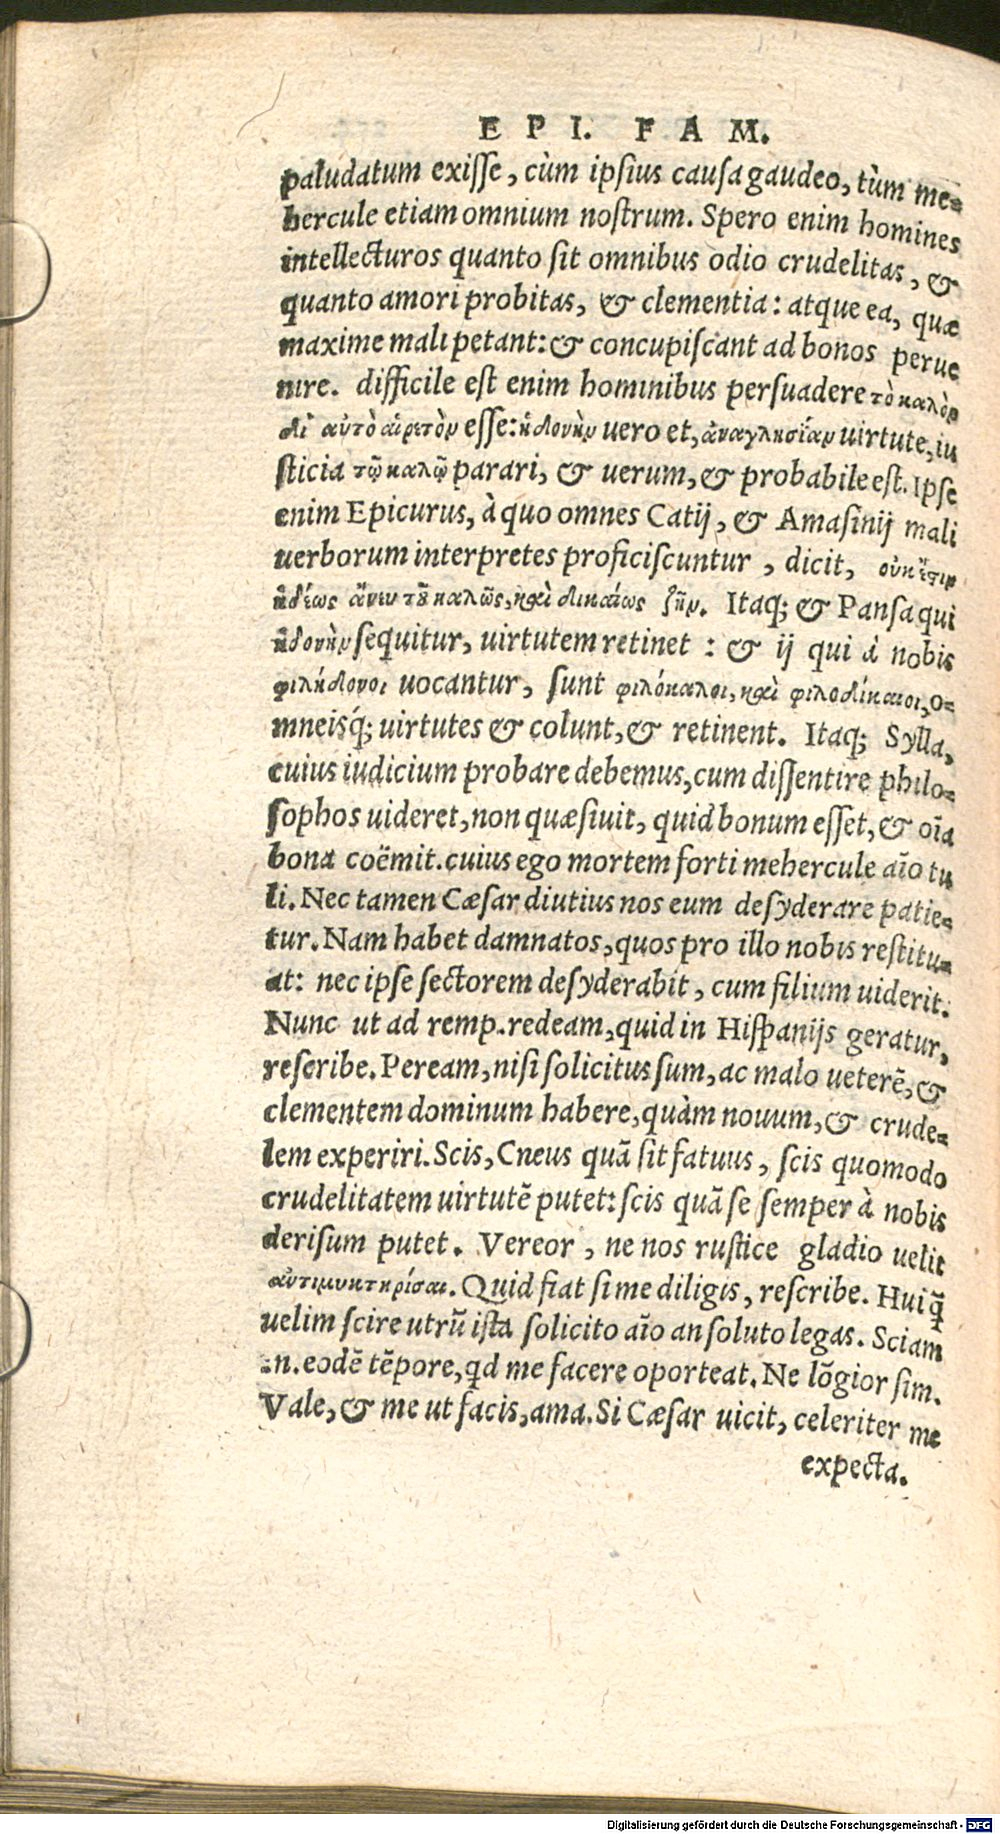 EPI. FAM.
paludatum exisse, cùm ipsius causa gaudeo, tùm me-
hercule etiam omnium nostrum. Spero enim homines
intellecturos quanto sit omnibus odio crudelitas, &
quanto amori probitas, & clementia: atque ea, quæ
maxime mali petant: & concupiscant ad bonos perue
nire. difficile est enim hominibus persuadere τὸ καλὸν
δι' αὐτὸ αἱρετὸν esse: ἡδονὴν uero et, ἀναγλησίαν uirtute, iu
sticia τῷ καλῷ parari, & uerum, & probabile est. Ipse
enim Epicurus, à quo omnes Catij, & Amasinij mali
uerborum interpretes proficiscuntur, dicit, οὐκ ἔστιν
ἡδέως ἄνευ τοῦ καλῶς, καὶ δικαίως ζῆν. Itaq; & Pansa qui
ἡδονὴν sequitur, uirtutem retinet : & ij qui à nobis
φιλήδονοι uocantur, sunt φιλόκαλοι, καὶ φιλοδίκαιοι, o-
mneisq́; uirtutes & colunt, & retinent. Itaq; Sylla,
cuius iudicium probare debemus, cum dissentire philo-
sophos uideret, non quæsiuit, quid bonum esset, & oīa
bona coëmit. cuius ego mortem forti mehercule aīo tu
li. Nec tamen Cæsar diutius nos eum desyderare patie-
tur. Nam habet damnatos, quos pro illo nobis restitu-
at: nec ipse sectorem desyderabit, cum filium uiderit.
Nunc ut ad remp. redeam, quid in Hispanijs geratur,
rescribe. Peream, nisi solicitus sum, ac malo ueterē, &
clementem dominum habere, quàm nouum, & crude-
lem experiri. Scis, Cneus quā sit fatuus, scis quomodo
crudelitatem uirtutē putet: scis quā se semper à nobis
derisum putet. Vereor, ne nos rustice gladio uelit
αντιμυκτηρίσαι. Quid fiat si me diligis, rescribe. Huiq̄
uelim scire utrū ista solicito aīo an soluto legas. Sciam
.n. eodē tēpore, qd me facere oporteat. Ne lōgior sim.
Vale, & me ut facis, ama. Si Cæsar uicit, celeriter me
expecta.
Digitalisierung gefördert durch die Deutsche Forschungsgemeinschaft - DFG